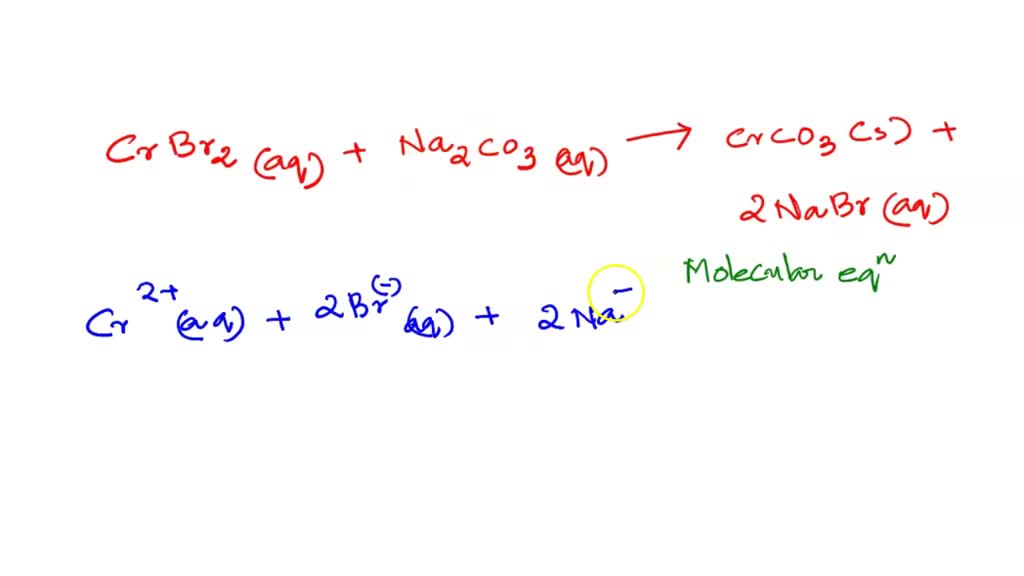 CrBr₂ (aq) + Na₂CO₃ (aq) → CrCO₃ (s) +
2NaBr (aq)
Molecular eqⁿ
Cr²⁺ (aq) + 2Br⁽⁻⁾ (aq) + 2Na⁻